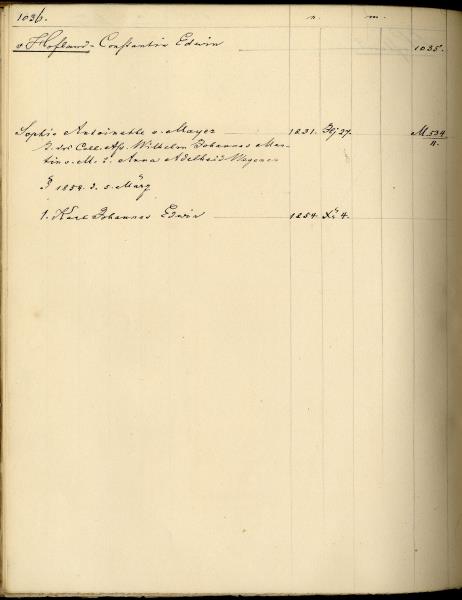 1036. n. m.
v. Hofland - Constantin Edwin 1035.
Sophie Antoinette v. Mayer 1831. 27. M. 534
T. des Coll. Ass. Wilhelm Johannes Mar- n.
tin v. M. & Anna Adelheid Wagener
1854. d. 5. März
1. Karl Johannes Edwin 1854. 4.